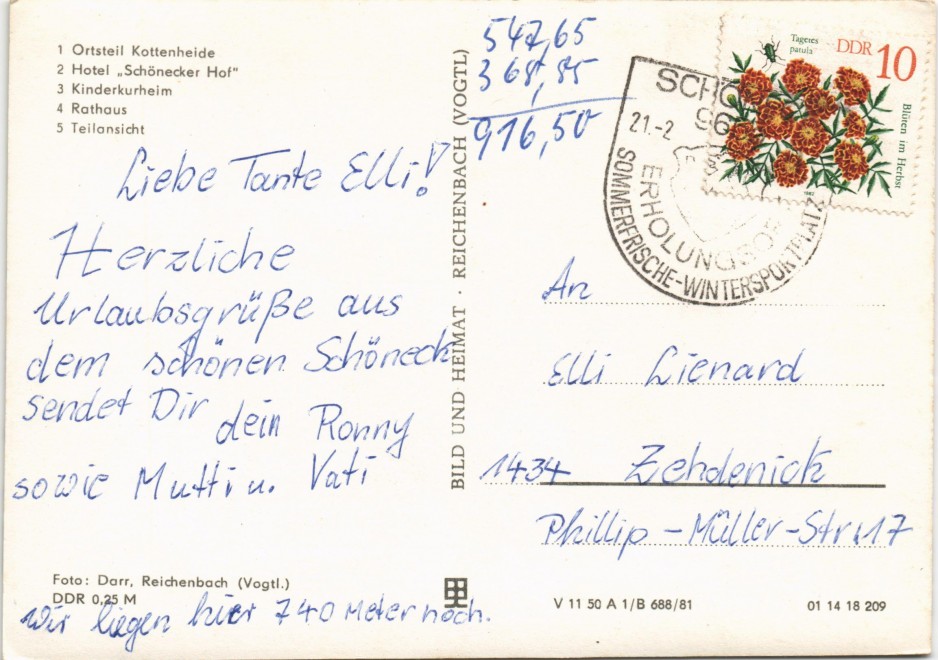 1 Ortsteil Kottenheide
2 Hotel „Schönecker Hof"
3 Kinderkurheim
4 Rathaus
5 Teilansicht
Liebe Tante Elli!
Herzliche
Urlaubsgrüße aus
dem schönen Schöneck
sendet Dir dein Ronny
sowie Mutti u. Vati
Foto: Darr, Reichenbach (Vogtl.)
DDR 0,25 M
wir liegen hier 740 Meter hoch.
BILD UND HEIMAT · REICHENBACH (VOGTL)
547,65
368,85
916,50
SCHÖ
96
21.-2
ERHOLUNGSOR
SOMMERFRISCHE-WINTERSPORTPLATZ
Tageres
patula
DDR 10
Blüten im Herbst
An
Elli Lienard
1434 Zehdenick
Phillip-Müller-Str. 17
V 11 50 A 1/B 688/81
01 14 18 209